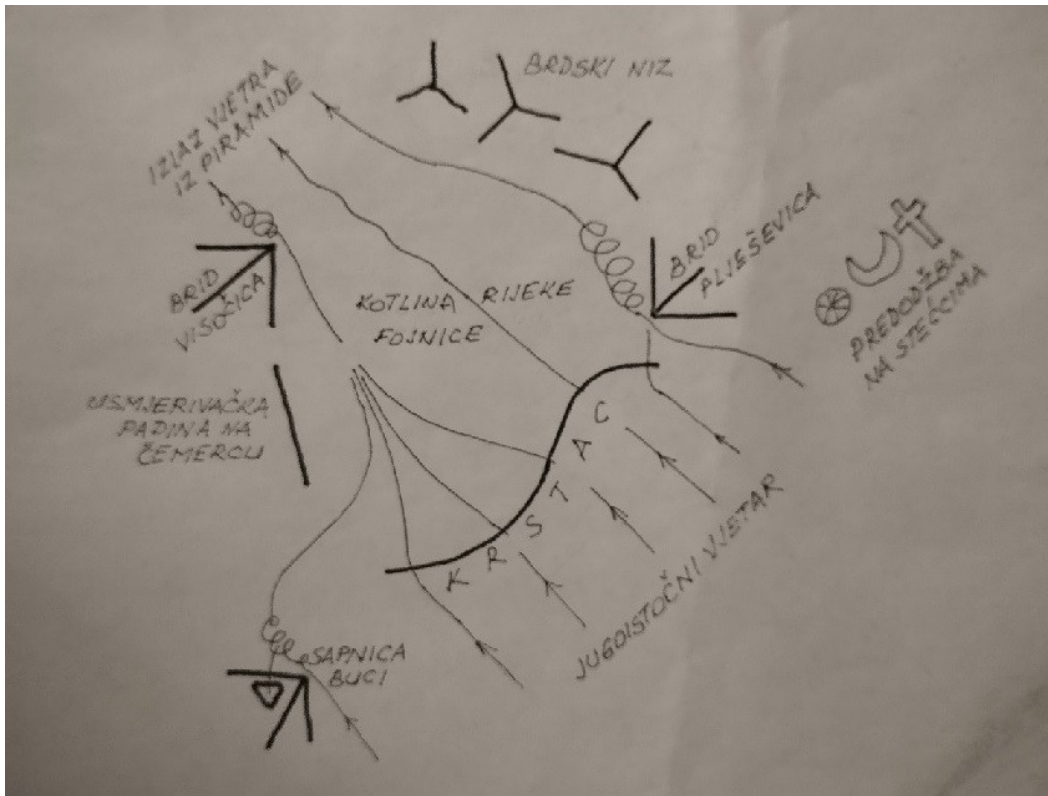 BRDSKI NIZ
IZLAZ VJETRA
IZ PIRAMIDE
BRID
PLJEŠEVICA
BRID
VISOČICA
KOTLINA RIJEKE
FOJNICE
PREDODŽBA
NA STEĆCIMA
USMJERIVAČKA
PADINA NA
ČEMERCU
KRSTAC
JUGOISTOČNI VJETAR
SAPNICA
BUCI